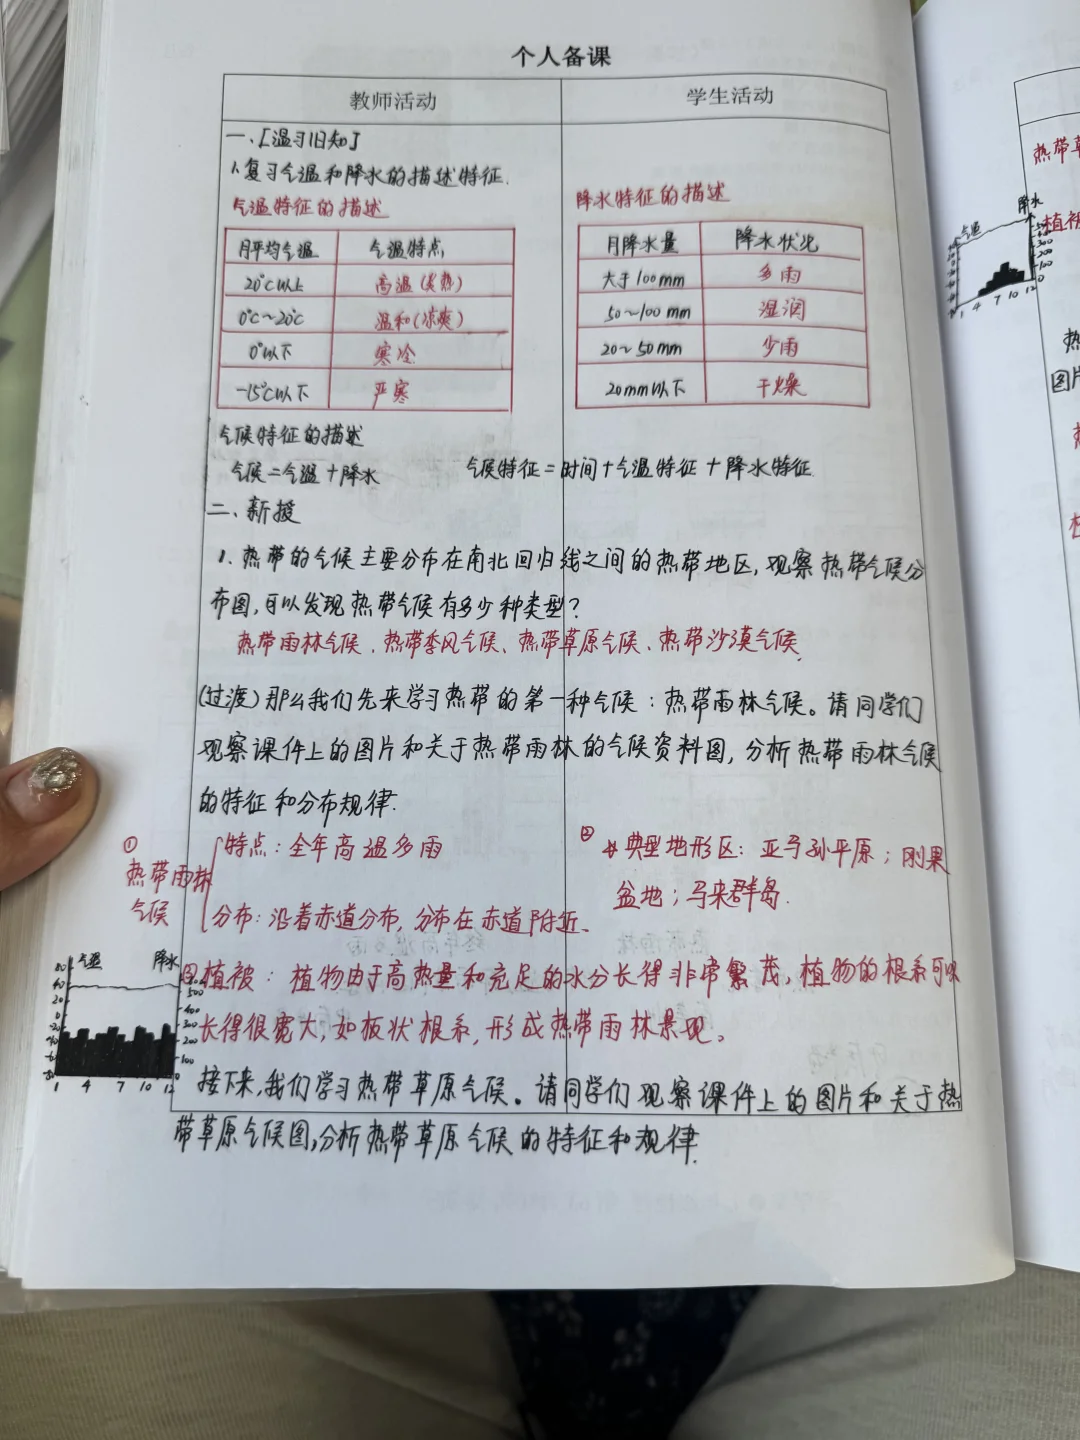 个人备课
教师活动 学生活动
一、[温习旧知]
1.复习气温和降水的描述特征.
气温特征的描述
月平均气温 气温特点
20℃以上 高温(炎热)
0℃~20℃ 温和(凉爽)
0°以下 寒冷
-15℃以下 严寒
降水特征的描述
月降水量 降水状况
大于100mm 多雨
50~100mm 湿润
20~50mm 少雨
20mm以下 干燥
气候特征的描述
气候=气温+降水 气候特征=时间+气温特征+降水特征.
二、新授
1.热带的气候主要分布在南北回归线之间的热带地区,观察热带气候分
布图,可以发现热带气候有多少种类型?
热带雨林气候、热带季风气候、热带草原气候、热带沙漠气候.
(过渡)那么我们先来学习热带的第一种气候:热带雨林气候。请同学们
观察课件上的图片和关于热带雨林的气候资料图,分析热带雨林气候
的特征和分布规律.
①
热带雨林
气候
特点:全年高温多雨
分布:沿着赤道分布,分布在赤道附近.
② 典型地形区:亚马孙平原;刚果
盆地;马来群岛.
气温 降水
1 4 7 10 12
植被:植物由于高热量和充足的水分长得非常繁茂,植物的根系可以
长得很宽大,如板状根系,形成热带雨林景观。
接下来,我们学习热带草原气候。请同学们观察课件上的图片和关于热
带草原气候图,分析热带草原气候的特征和规律.
热带草
气温 降水
植被
1 4 7 10 12
图片